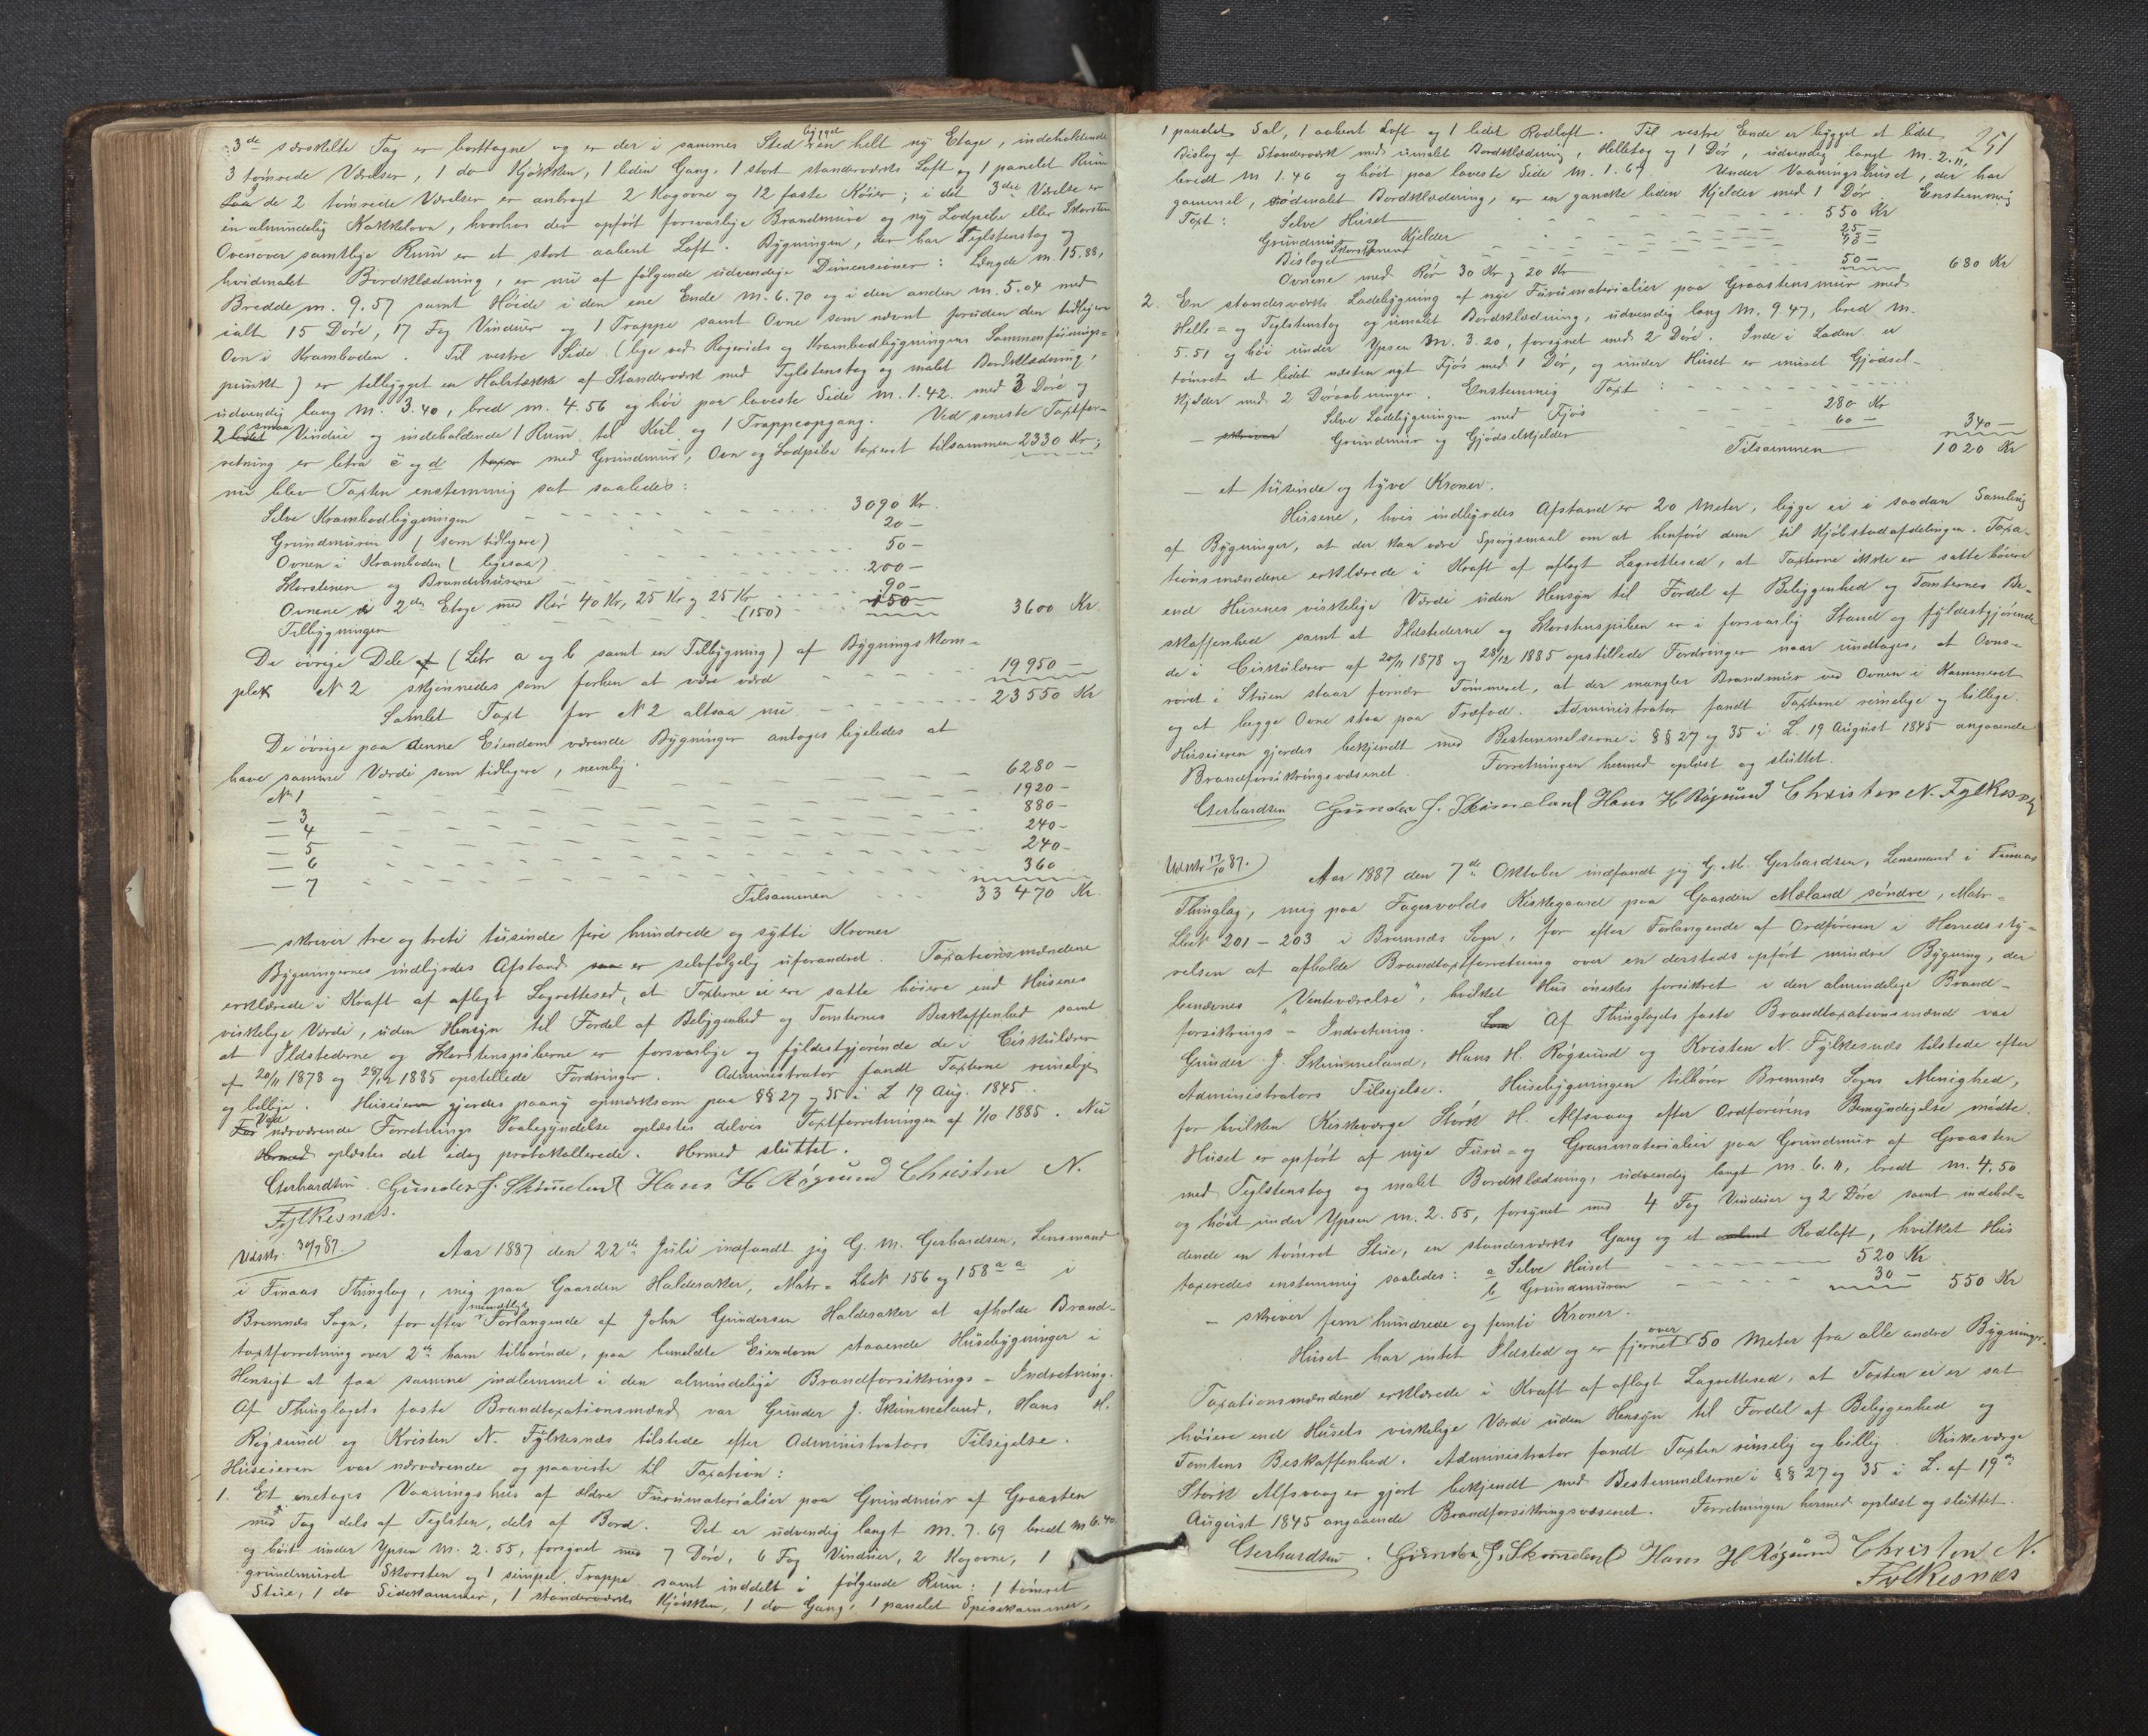 3de særskilte Tag er borttagne og er der i sammes Sted bygget en helt ny Etage, indeholdende
3 tømrede Værelser, 1 do Kjøkken, 1 liden Gang, 1 stort standerværks Loft og 1 panelet Rum
de 2 tømrede Værelser er anbragt 2 Kogovne og 12 faste Køier; i det 3die Værelse er
en almindelig Kakkelovn, hvorhos der opført forsvarlige Brandmure og ny Lodpibe eller Skorsten
Ovenover samtlige Rum er et stort aabent Loft. Bygningen, der har Teglstenstag og
hvidmalet Bordklædning, er nu af følgende udvendige Dimensioner: Længde m. 15.88,
Bredde m. 9.57 samt Høide i den ene Ende m. 6.70 og i den anden m. 5.04 med
ialt 15 Døre, 17 Fag Vinduer og 1 Trappe samt Ovne som nævnt foruden den tidligere
Ovn i Kramboden. Til vestre Side (lige ved Rogeriets og Krambodbygningens Sammenføinings-
punkt) er tilbygget en Halvtække af Standerværk med Teglstenstag og malet Bordklædning,
udvendig lang m. 3.40, bred m. 4.56 og høi paa laveste Side m. 1.42. med 3 Døre og
2 smaa Vindue og indeholdende 1 Rum til Kul og 1 Trappeopgang. Ved seneste Taxtfor-
retning er litra c og d med Grundmur, Ovn og Lodpibe taxeret tilsammen 2330 Kr;
nu blev Taxten enstemmig sat saaledes:
Selve Krambodbygningen 3090 Kr.
Grundmuren (som tidligere) 20 -
Ovnen i Kramboden (ligesaa) 50 -
Skorstenen og Brandmurene 200 -
Ovnene i 2den Etage med Rør 40 Kr, 25 Kr og 25 Kr 90 -
Tilbygningen (150) 150 - 3600 Kr
De øvrige Dele af (Litr a og b samt en Tilbygning) af Bygningskom-
plex No 2 skjønnedes som forhen at være værd 19950 -
Samlet Taxt for No 2 altsaa nu 23550 Kr
De øvrige paa denne Eiendom værende Bygninger antages ligeledes at
have samme Værdi som tidligere, nemlig:
No 1 6280 -
- 3 1920 -
- 4 880 -
- 5 240 -
- 6 240 -
- 7 360
Tilsammen 33470 Kr.
- skriver tre og treti tusinde fire hundrede og sytti Kroner
Bygningernes indbyrdes Afstand saa er selvfølgelig uforandret. Taxationsmændene
erklærede i Kraft af aflagt Lagrettesed, at Taxterne ei ere satte høiere end Husenes
virkelige Værdi, uden Hensyn til Fordel af Beliggenhed og Tomternes Beskaffenhed samt
at Ildstederne og Skorstenspiberne er forsvarlige og fyldestgjørende de i Cirkulærer
af 20/11 1878 og 28/12 1885 opstillede Fordringer. Administrator fandt Taxterne rimelige
og billige. Huseieren gjordes paany opmærksom paa §§ 27 og 35 i L 19 Aug. 1845.
Ved nærværende Forretnings Paabegyndelse oplæstes delvis Taxtforretningen af 1/10 1885. Nu
Hermed oplæstes det idag protokollerede. Hermed sluttet.
Gerhardsen. Gunder J. Skimeland Hans H Røgsund Christen N.
Fylkesnæs.
Udskr. 30/7 87. Aar 1887 den 22de Juli indfandt jeg G. M. Gerhardsen, Lensmand
i Finaas Thinglag, mig paa Gaarden Haldesaker, Matr= Lbe No 156 og 158 a a i
Bremnæs Sogn, for efter mundtligt Forlangende af John Gundersen Haldesaker at afholde Brand-
taxtforretning over 2de ham tilhørende, paa bemeldte Eiendom staaende Husebygninger i
Hensigt at faa samme indlemmet i den almindelige Brandforsikrings - Indretning.
Af Thinglagets faste Brandtaxationsmænd var Gunder J. Skimmeland, Hans H.
Røgsund og Kristen N. Fylkesnæs tilstede efter Administrators Tilsigelse.
Huseieren var nærværende og paaviste til Taxation:
1. Et enetages Vaaningshus af ældre Furumaterialier paa Grundmur af Graasten
med Tag dels af Teglsten, dels af Bord. Det er udvendig langt m. 7.69 bredt m 6.40
og høit under Ypsen m. 2.55, forsynet med 7 Døre, 6 Fag Vinduer, 2 Kogovne, 1
grundmuret Skorsten og 1 simpel Trappe samt inddelt i følgende Rum: 1 tømret
Stue, 1 do Sidekammer, 1 standerværks Kjøkken, 1 do Gang, 1 panelet Spisekammer,
251
1 panelet Sal, 1 aabent Loft og 1 lidet Rodloft. Til vestre Ende er bygget et lidet
Bislag af Standerværk med umalet Bordklædning, Helletag og 1 Dør, udvendig langt m. 2.11,
bredt m 1.46 og høit paa laveste Side m. 1.69. Under Vaaningshuset, der har
gammel, rødmalet Bordklædning, er en ganske liden Kjelder med 1 Dør Enstemmig
Taxt: Selve Huset 550 Kr
Grundmur og Kjelder 25 -
Bislaget Skorstenen
Ovnene med Rør 30 Kr og 20 Kr 50 - 680 Kr
2. En standerværks Ladebygning af nye Furumaterialier paa Graastensmur med
Helle= og Teglstenstag og umalet Bordklædning, udvendig lang M. 9.47, bred m.
5.51 og høi under Ypsen m. 3.20, forsynet med 2 Døre. Inde i Laden er
tømret et lidet næsten nyt Fjøs med 1 Dør, og under Huset er muret Gjødsel-
kjelder med 2 Døraabninger. Enstemmig Taxt:
Selve Ladebygningen med Fjøs 280 Kr
- skriver Grundmur og Gjødselkjelder 60 - 340 -
Tilsammen 1020 Kr
- et tusinde og tyve Kroner.
Husene, hvis indbyrdes Afstand er 20 Meter, ligge ei i saadan Samling
af Bygninger, at der kan være Spørgsmaal om at henføre dem til Kjøbstadafdelingen. Taxa-
tionsmændene erklærede i Kraft af aflagt Lagrettesed, at Taxterne ikke er satte høiere
end Husenes virkelige Værdi uden Hensyn til Fordel af Beliggenhed og Tomternes Be-
skaffenhed samt at Ildstederne og Skorstenspiben er i forsvarlig Stand og fyldestgjørende
de i Cirkulærer af 20/11 1878 og 28/12 1885 opstillede Fordringer naar undtages, at Ovns-
røret i Stuen staar fornær Tømmeret, at der mangler Brandmur ved Ovnen i Kammeret
og at begge Ovne staa paa Træfod. Administrator fandt Taxterne rimelige og billige.
Huseieren gjordes bekjendt med Bestemmelserne i §§ 27 og 35 i L. 19 August 1845 angaaende
Brandforsikringsvæsenet. Forretningen hermed oplæst og sluttet.
Gerhardsen Gunder J. Skimeland Hans H Røgsund Christen N. Fylkesnæs
Udskr 17/10 87. Aar 1887 den 7de Oktober indfandt jeg G. M. Gerhardsen, Lensmand i Finaas
Thinglag, mig paa Fagervolds Kirkegaard paa Gaarden Mæland søndre, Matr=
Lbe No 201 - 203 i Bremnæs Sogn, for efter Forlangende af Ordføreren i Herredssty-
relsen at afholde Brandtaxtforretning over en dersteds opført mindre Bygning, der
benævnes "Venteværelse", hvilket Hus ønskes forsikret i den almindelige Brand-
forsikrings - Indretning. Af Thinglagets faste Brandtaxationsmænd var
Gunder J. Skimmeland, Hans H. Røgsund og Kristen N. Fylkesnæs tilstede efter
Administrators Tilsigelse. Husebygningen tilhører Bremnæs Sogns Menighed,
for hvilken Kirkeværge Størk H. Alfsvaag efter Ordførerens Bemyndigelse mødte.
Huset er opført af nye Furu= og Granmaterialier paa Grundmur af Graasten
med Teglstenstag og malet Bordklædning, udvendig langt m. 6.11, bredt m. 4.50
og høit under Ypsen m. 2.55, forsynet med 4 Fag Vinduer og 2 Døre samt indehol=
dende en tømret Stue, en standerværks Gang og et Rodloft, hvilket Hus
taxeredes enstemmig saaledes: a Selve Huset 520 Kr
b Grundmuren 30 - 550 Kr
- skriver fem hundrede og femti Kroner.
Huset har intet Ildsted og er fjernet over 50 Meter fra alle andre Bygninger.
Taxationsmændene erklærede i Kraft af aflagt Lagrettesed, at Taxten ei er sat
høiere end Husets virkelige Værdi uden Hensyn til Fordel af Beliggenhed og
Tomtens Beskaffenhed. Administrator fandt Taxten rimelig og billig. Kirkeværge
Størk Alfsvaag er gjort bekjendt med Bestemmelserne i §§ 27 og 35 i L. af 19de
August 1845 angaaende Brandforsikringsvæsenet. Forretningen hermed oplæst og sluttet.
Gerhardsen. Gunder J. Skimeland Hans H Røgsund Christen N.
Fylkesnæs